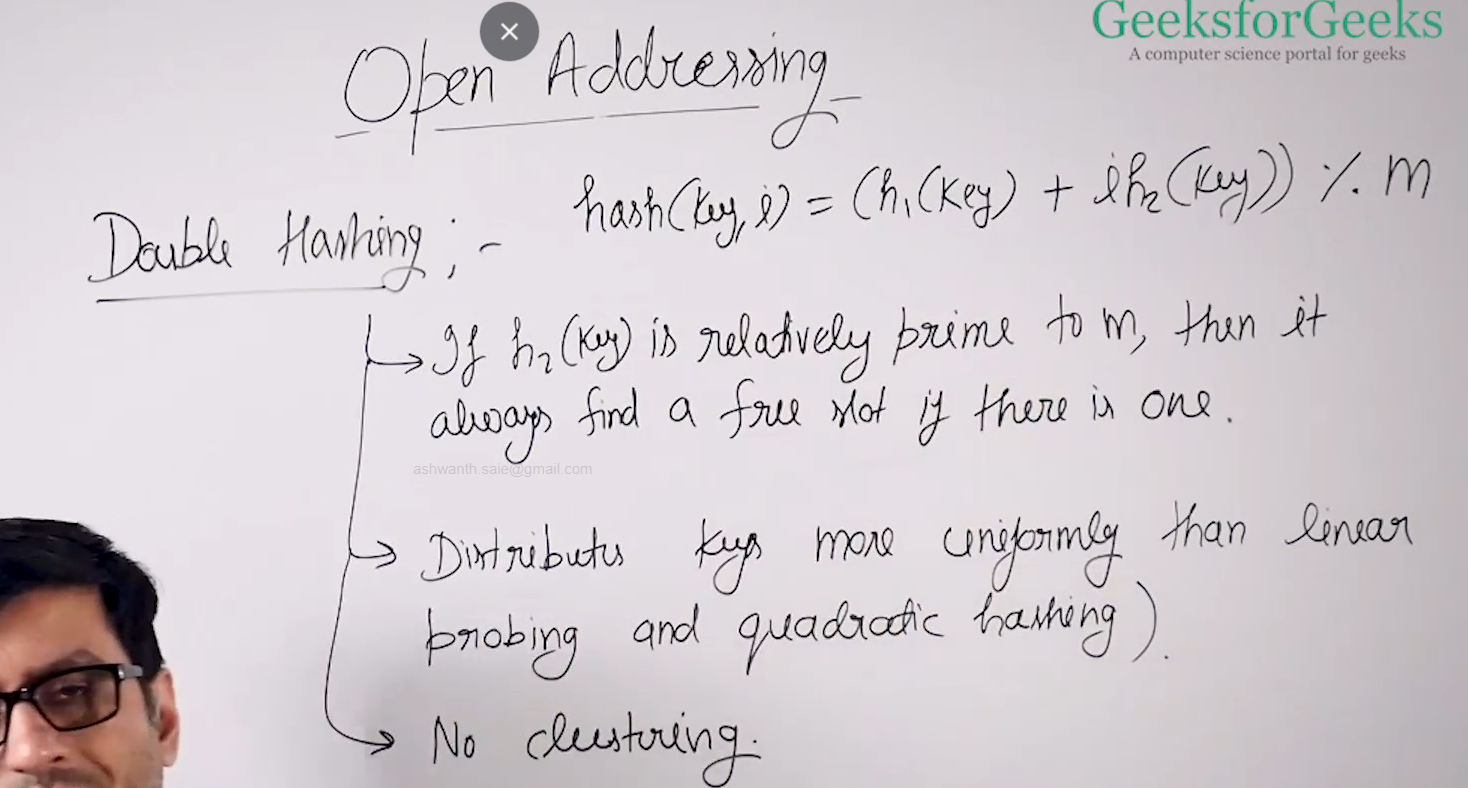 GeeksforGeeks
A computer science portal for geeks
Open Addressing
hash(key, i) = (h₁(key) + ih₂(key)) % m
Double Hashing :-
If h₂(key) is relatively prime to m, then it
always find a free slot if there is one.
ashwanth.saie@gmail.com
Distributes keys more uniformly than linear
probing and quadratic hashing).
No clustering.